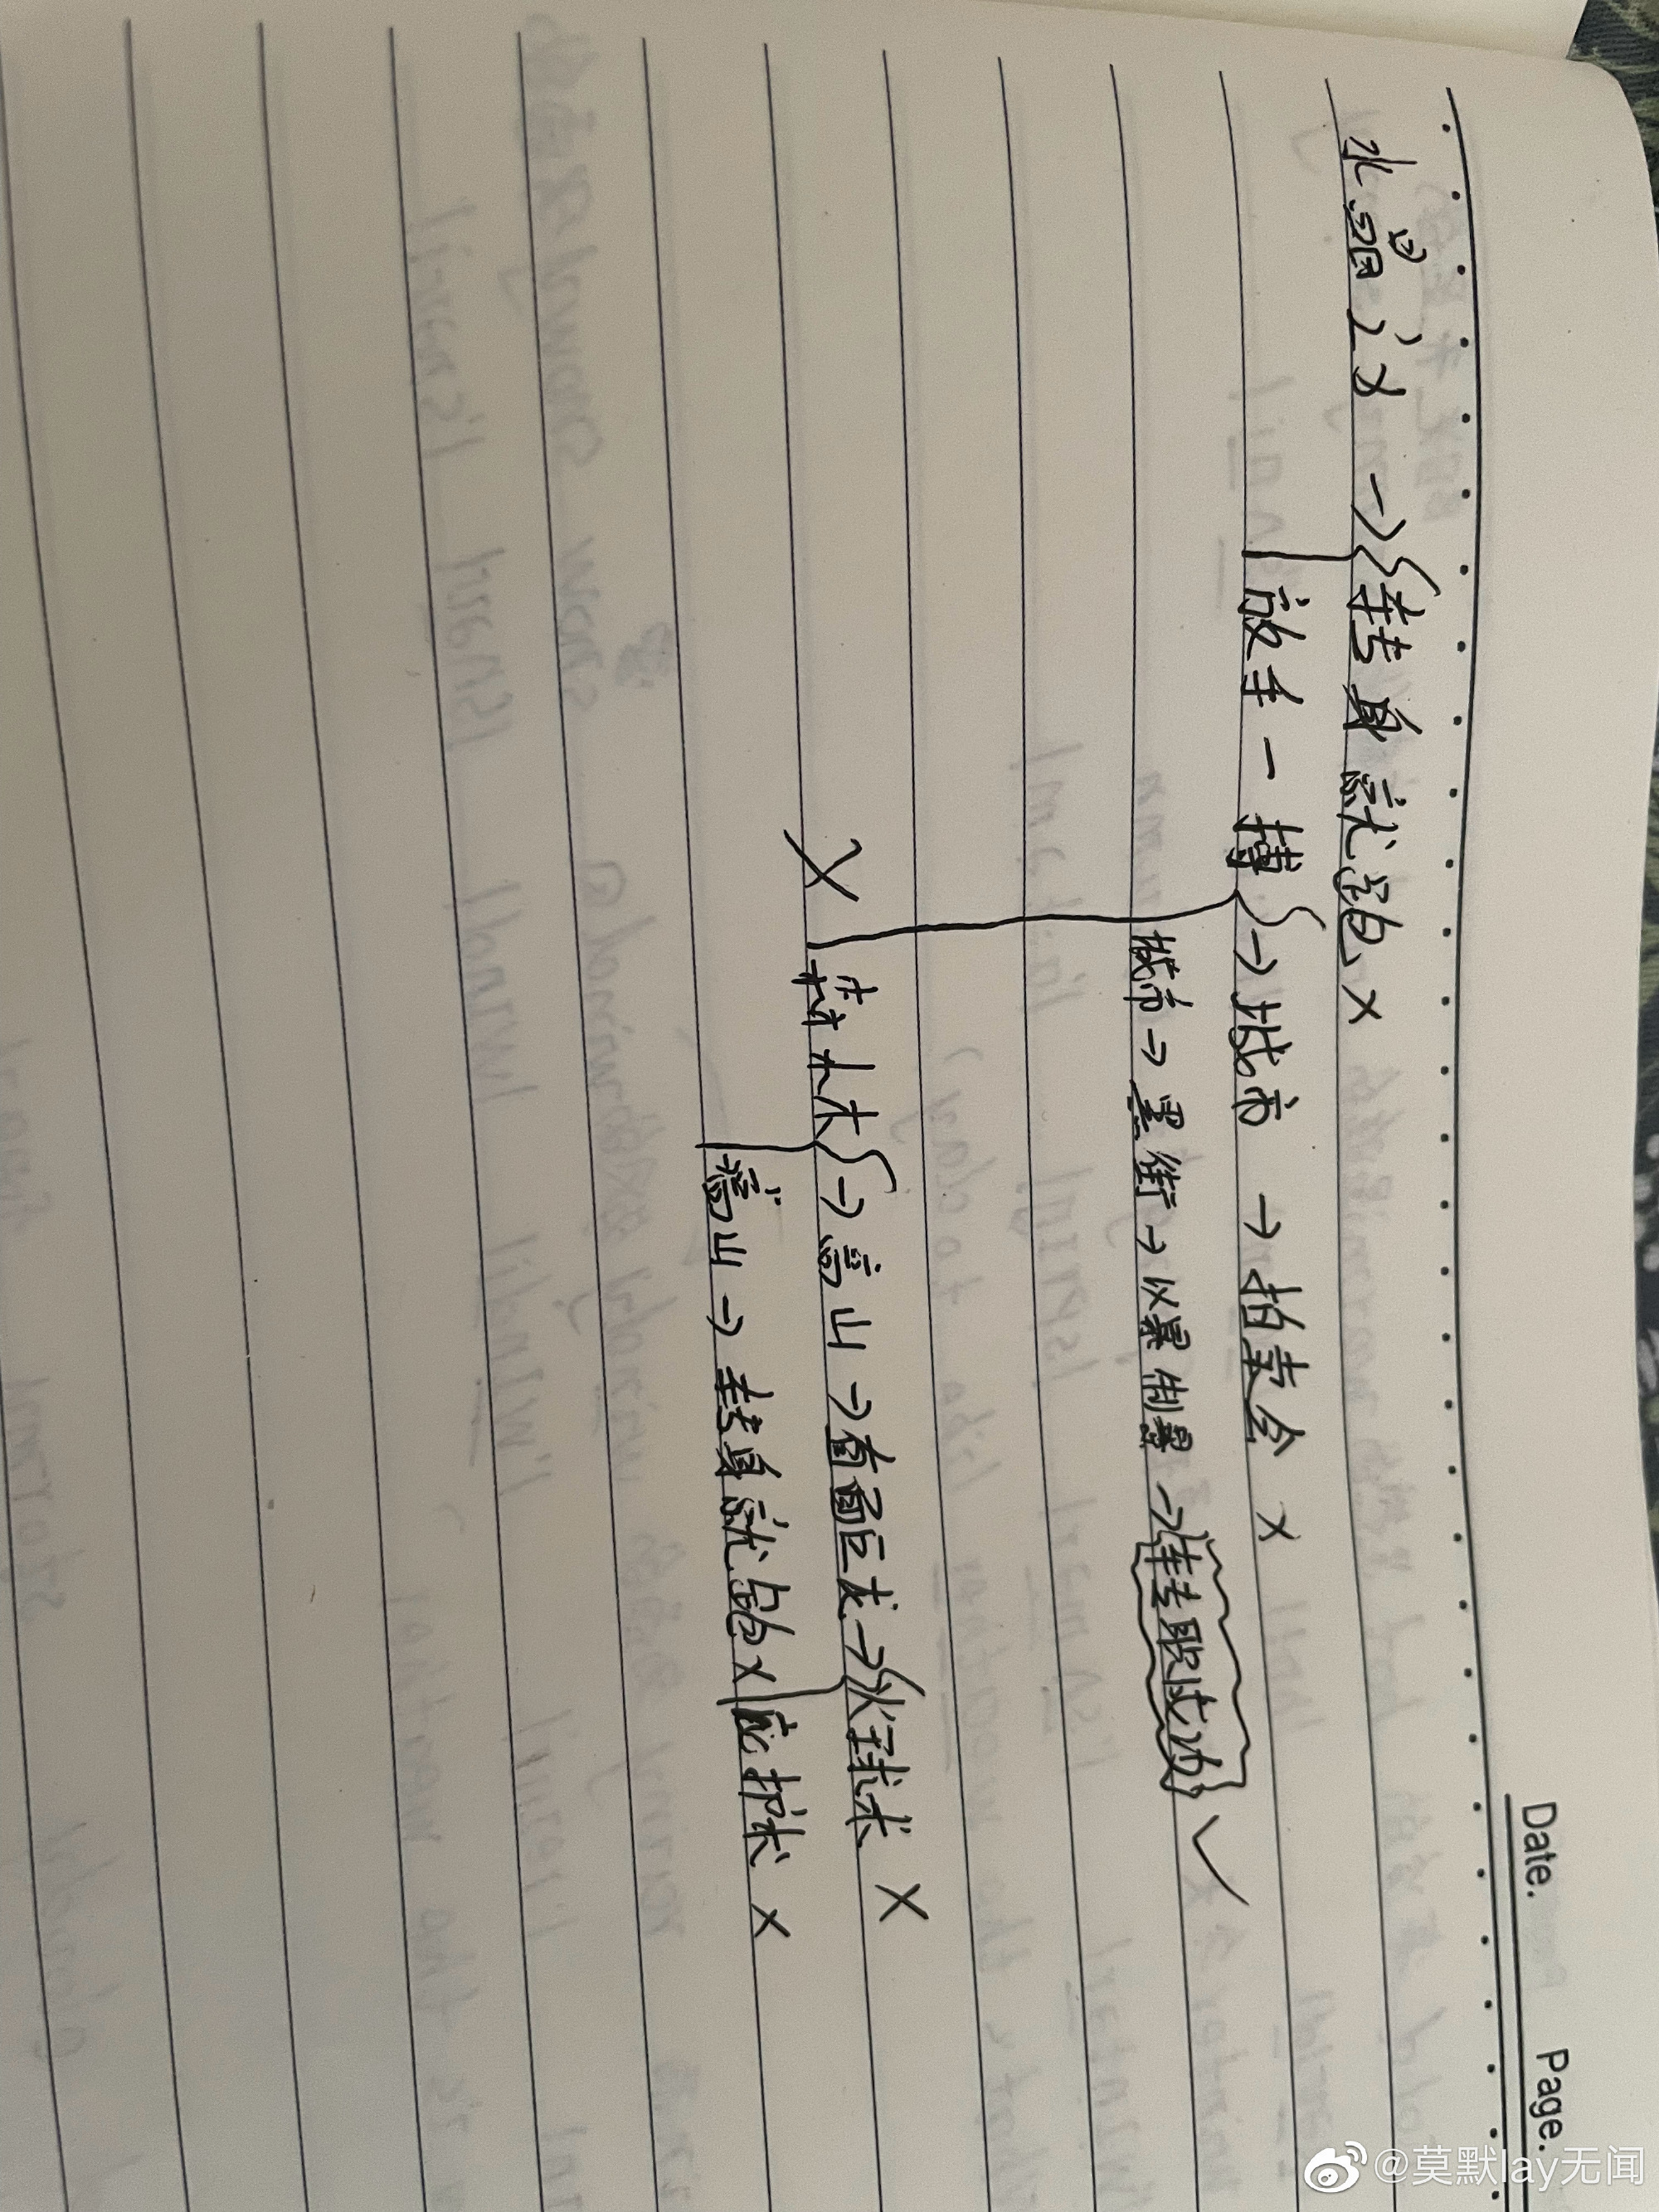 Date. Page.
水晶之义 → 转身就跑 ×
放手一搏 → 城市 → 拍卖会 ×
城市 → 黑街 → 以暴制暴 → 转职成功 ✓
× 森林 → 高山 → 直面巨龙 → 火球术 ×
高山 → 转身就跑 × 庇护术 ×
@莫默lay无闻